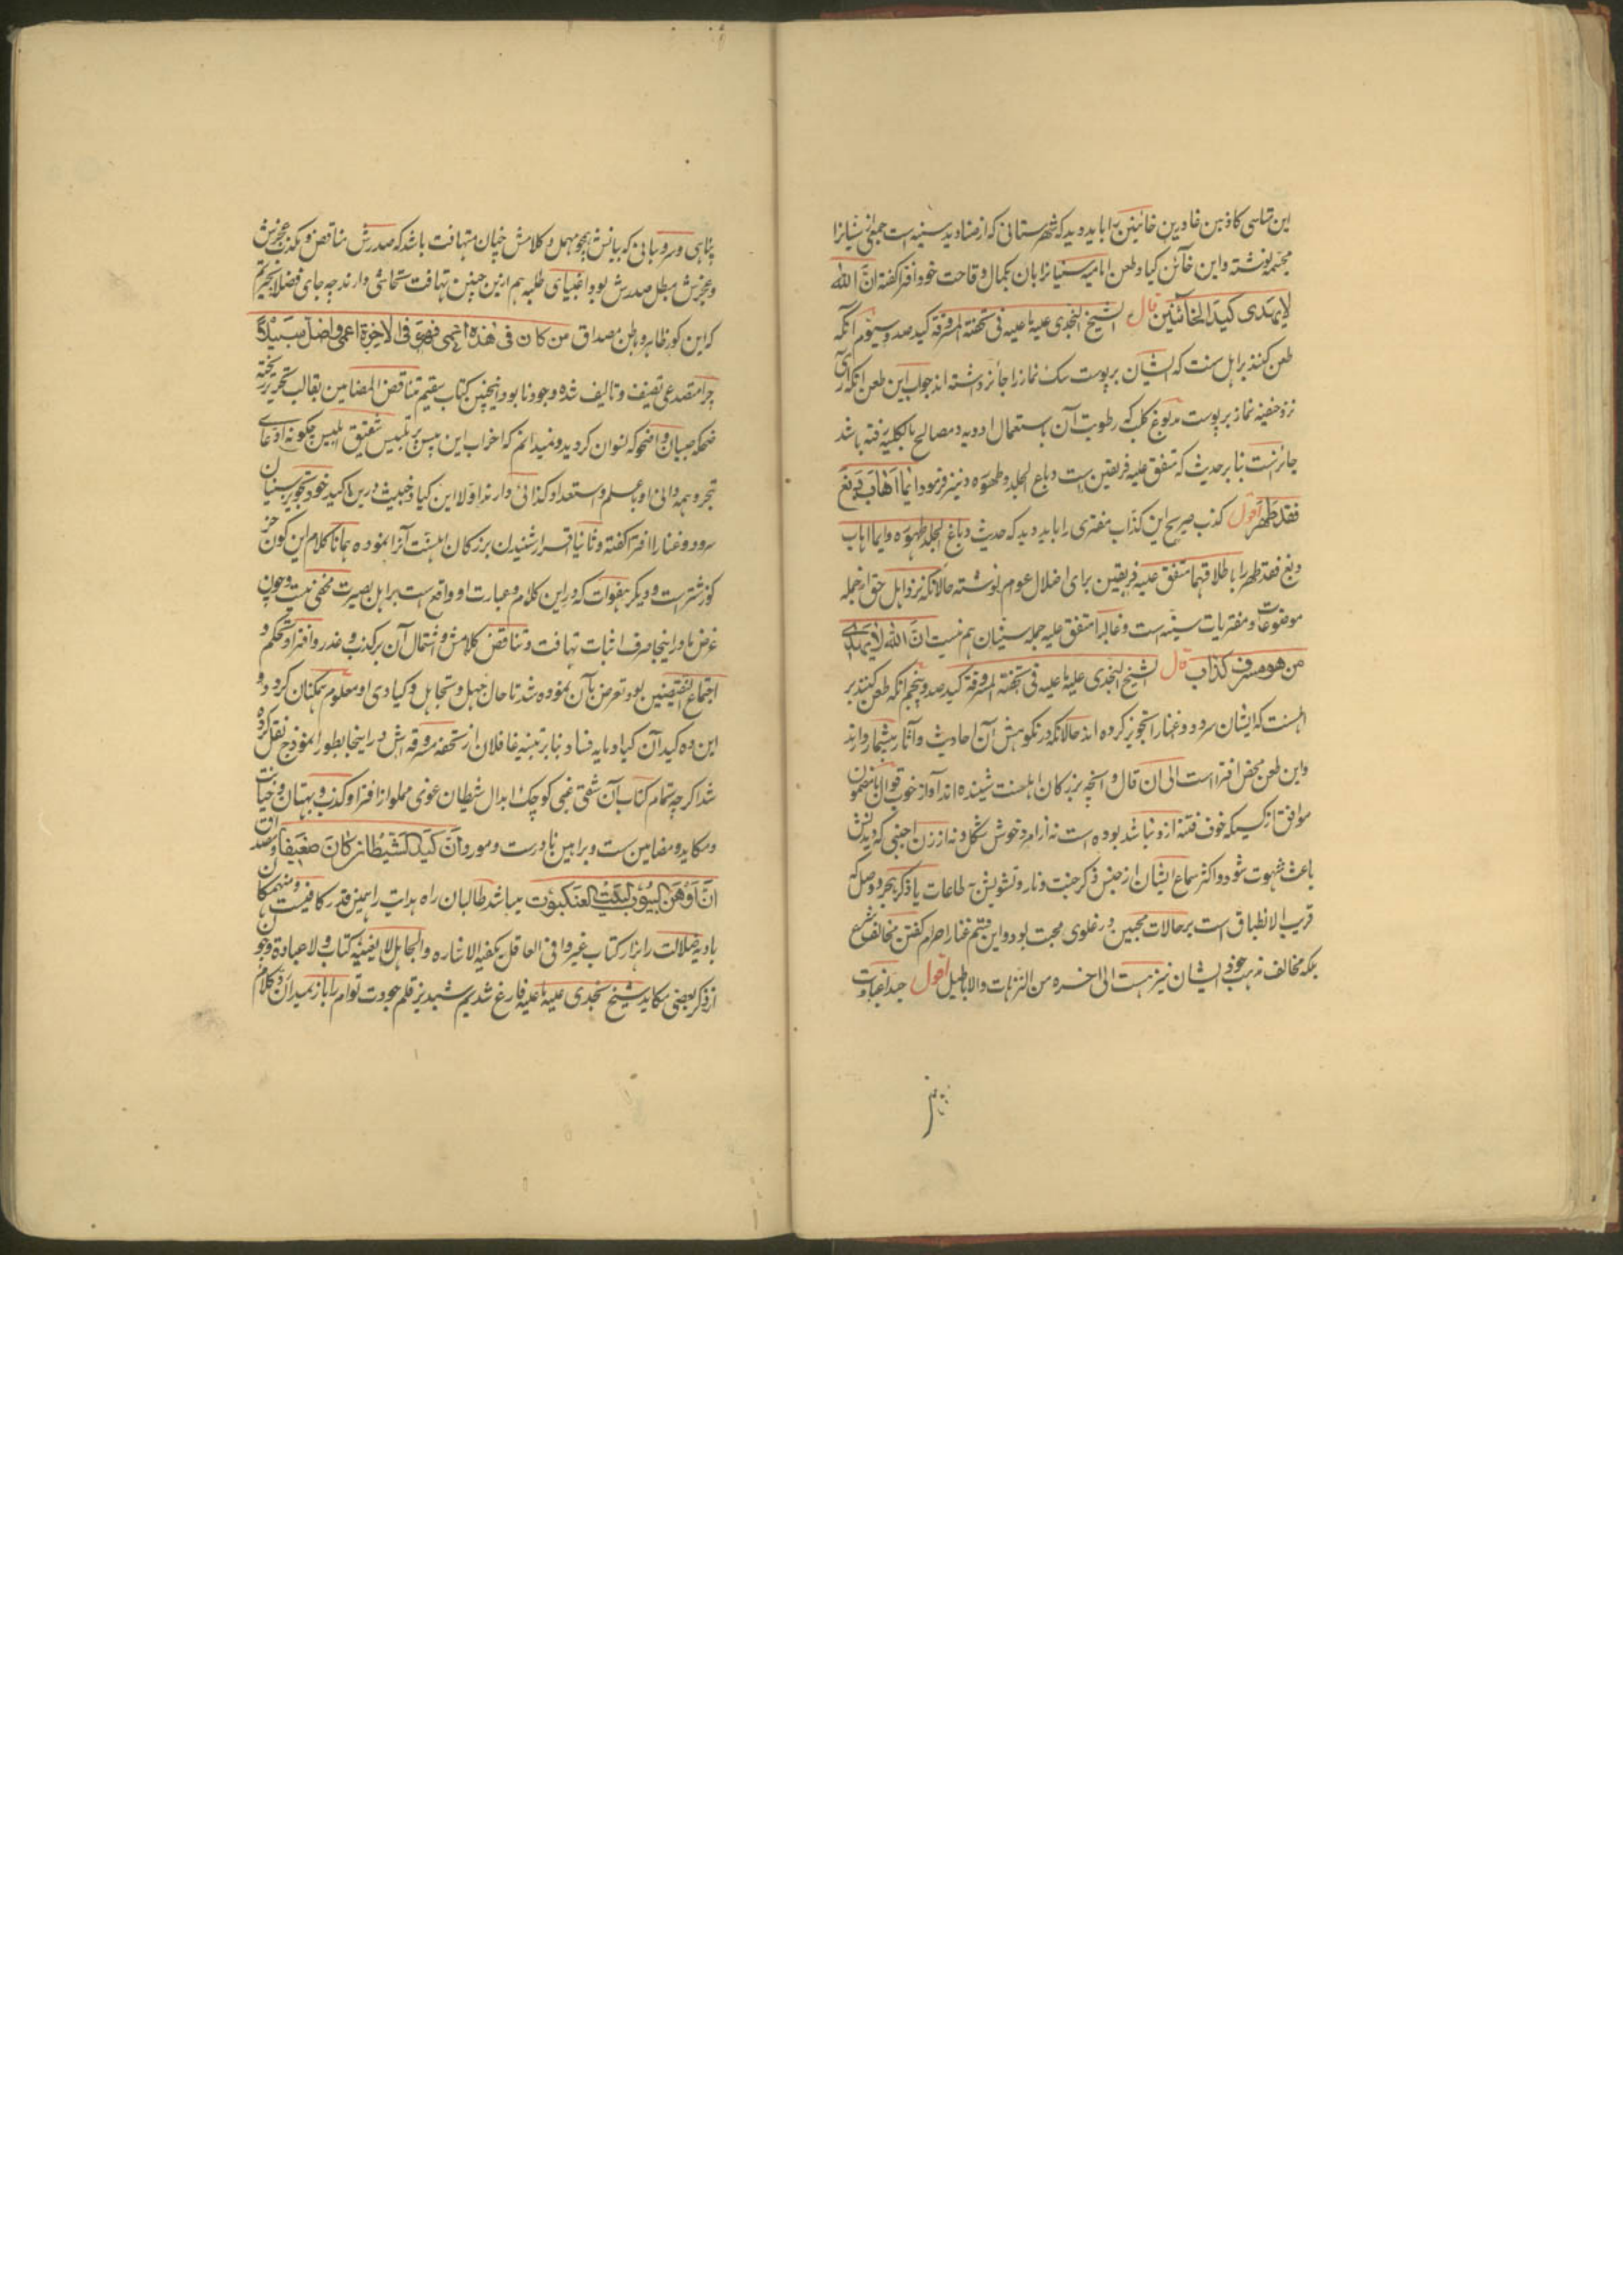 این تناسی کاذبین غادرین خائنین را باید دید که شهرستانی که از صنادید سنیه است جمیع سنیانرا
مجسمه نوشته و این خائن کیاد طعن امامیه سنیانرا بان بکمال وقاحت خود افترا گفته انّ الله
لا یهدی کید الخائنین قال الشیخ النجدی علیه ما علیه فی تحفته المسروقة کید صد و سیوم آنکه
طعن کنند بر اهل سنت که ایشان بر پوست سک نماز را جائز داشته اند جواب این طعن آنکه آری
نزد حنفیه نماز بر پوست مدبوغ کلب که رطوبت آن باستعمال ادویه و مصالح بالکلیه رفته باشد
جائزست بنا بر حدیث که متفق علیه فریقین است دباغ الجلد طهوره و نیز فرمود ایما اهاب دبغ
فقد طهر اقول کذب صریح این کذّاب مفتری را باید دید که حدیث دباغ الجلد طهوره و ایما اهاب
دبغ فقد طهر را باطلاقهما متفق علیه فریقین برای اضلال عوام نوشته حالانکه نزد اهل حق از جمله
موضوعات و مفتریات سنیه است و غالبا متفق علیه جمله سنیان هم نیست انّ الله لا یهدی
من هو مسرف کذاب قال الشیخ النجدی علیه ما علیه فی تحفته المسروقة کید صد و پنجم آنکه طعن کنند بر
اهلسنت که ایشان سرود و غنا را تجویز کرده اند حالانکه در نکوهش آن احادیث و آثار بیشمار وارند
و این طعن محض افترا است الی ان قال و آنچه بزرکان اهلسنت شینده اند آواز خوب قوال بمضمون
موافق از کسیکه خوف فتنه ازو نباشد بوده است نه از امرد خوش شکل و نه از زن اجنبی که دیدنش
باعث شهوت شود و اکثر سماع ایشان از جنس ذکر جنت و نار و تشویش به طاعات یا ذکر هجر و وصل که
قریب الانطباق است بر حالات محبین در غلوی محبت بود و این قسم غنا را حرام گفتن مخالف شرع
بلکه مخالف مذهب خود ایشان نیز هست الی اخره من الترهات والاباطیل اقول
پناهی و سر و بیانی که بیانش همچو مهمل و کلامش چنان متهافت باشد که صدرش مناقض و مکذب عجزش
و عجزش مبطل صدرش بود و اغبیای طلبه هم ازین چنین تهافت تحاشی دارند چه جای فضلا
که این کور ظاهر و باطن مصداق من کان فی هذه اعمی فهو فی الاخرة اعمی و اضل سبیلا
چرا متصدعی تصنیف و تالیف شده وجود نابود و اینچنین کتاب سقیم متناقض المضامین بقالب تحریر ریخته
ضحکه صبیان و اضحوکه نسوان کردید و نمیدانم که احزاب این تلبیس شقیق ابلیس چکونه ادعای
تبحر و همه دانی او با علم و استعداد کذائی دارند اولا این کیاد خبیث درین کید خود تجویز سنیان
سرود و غنا را افترا گفته و ثانیا اقرار شنیدن بزرکان اهلسنت آنرا نموده همانا کلام این کون خر
کوز شترست و دیکر هفوات که در این کلام و عبارت او واقع است بر اهل بصیرت مخفی نیست و چون
غرض ما در اینجا صرف اثبات تهافت و تناقض کلامش و اشتمال آن بر کذب و غدر و افترا و تحکم و
اجتماع النقیضین بود و تعرض بآن نموده شد تا حال جهل و تجاهل و کیادی او معلوم همکنان کردد و
این ده کید آن کیاد مایه فساد بنابر تنبیه غافلان از تحفه مسروقه اش در اینجا بطور انموذج نقل کرده
شد اکرچه تمام کتاب آن شقی غبی کوچک ابدال شیطان غوی مملو از افترا و کذب و بهتان و خیانت
و مکاید و مضامین ست و براهین نادرست و مورد آن کید الشیطان کان ضعیفا و مصداق
ان اوهن البیوت لبیت العنکبوت میباشد طالبان راه هدایت را همین قدر کافیست و منهمکان
بادیه ضلالت را هزار کتاب غیر وافی العاقل یکفیه الاشاره والجاهل لا یغنیه کتاب ولا عبارة و چون
از ذکر بعضی مکاید شیخ نجدی علیه ما علیه فارغ شدیم شبدیز قلم جودت توام را باز بمیدان